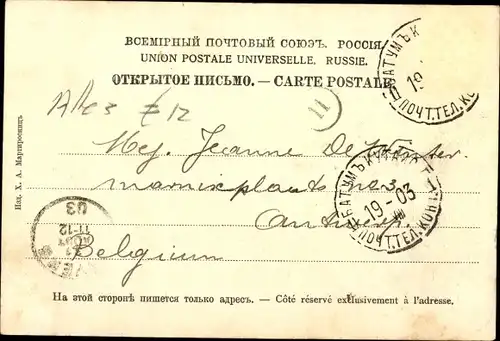 ВСЕМІРНЫЙ ПОЧТОВЫЙ СОЮЗЪ. РОССІЯ.
UNION POSTALE UNIVERSELLE. RUSSIE.
ОТКРЫТОЕ ПИСЬМО. — CARTE POSTALE
БАТУМЪ
19
ПОЧТ.ТЕЛ.КО
11
Mej. Jeanne De
marnixplaats no 3
Antwerp
Belgium
БАТУМЪ
19-03
ПОЧТ.ТЕЛ.КОН
03
11-12
Изд. Х. А. Мартиросянцъ
На этой сторонѣ пишется только адресъ. — Côté réservé exclusivement à l'adresse.